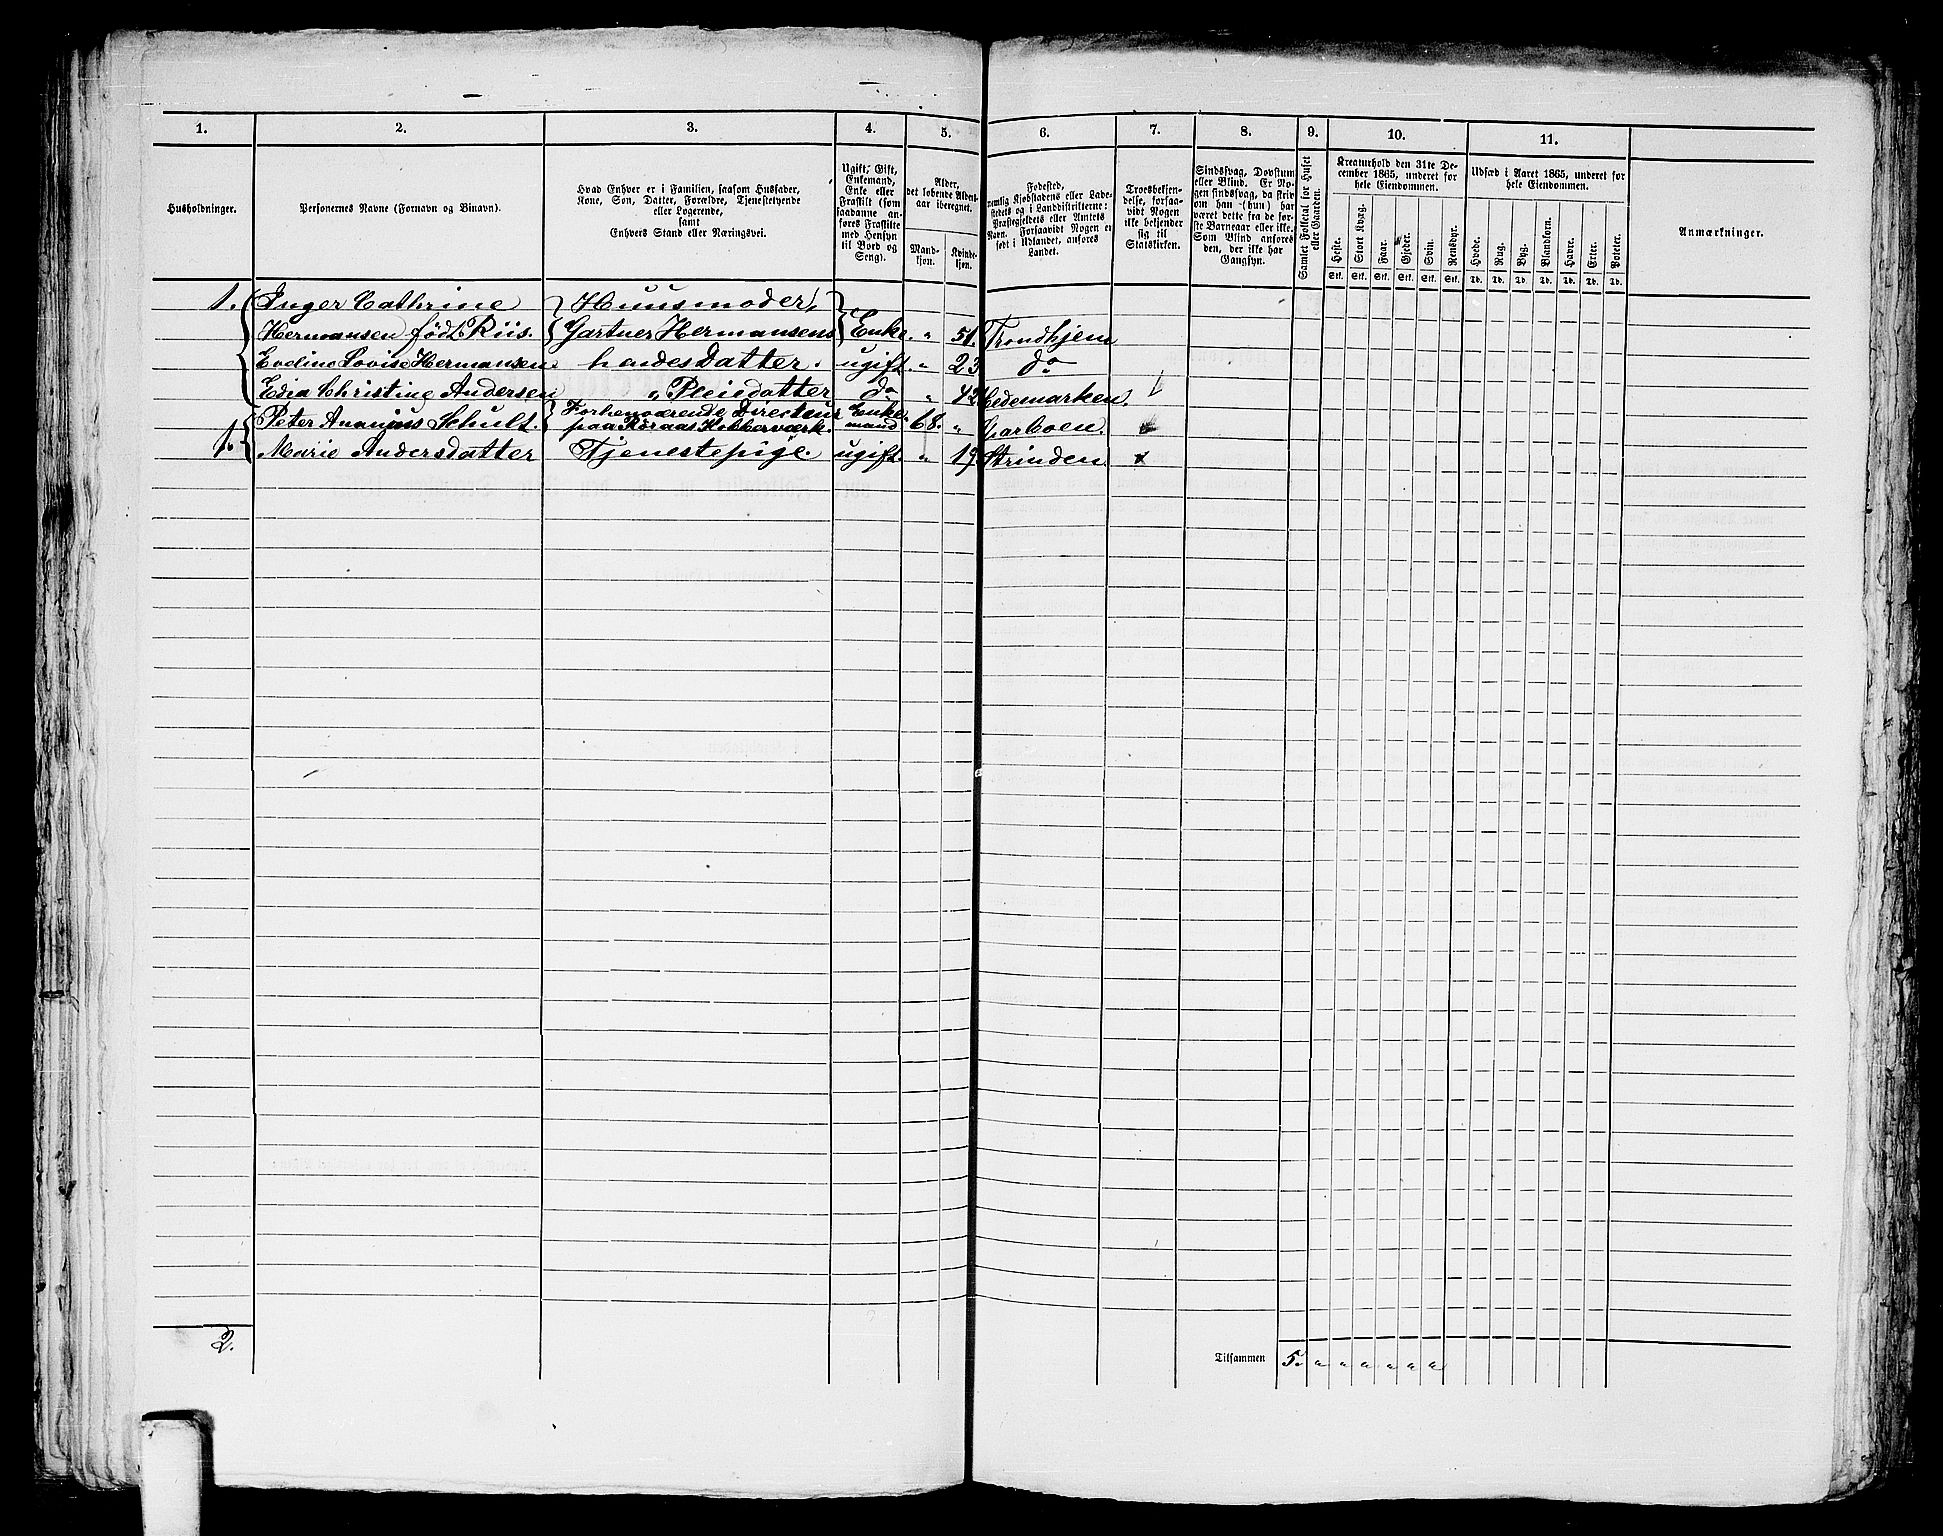 1. 2. 3. 4. 5. 6. 7. 8. 9. 10. 11.
Husholdninger.
Personernes Navne (Fornavn og Binavn).
Hvad Enhver er i Familien, saasom Husfader,
Kone, Søn, Datter, Forældre, Tjenestetyende
eller Logerende,
samt
Enhvers Stand eller Næringsvei.
Ugift, Gift,
Enkemand,
Enke eller
Fraskilt (som
saadanne an-
føres Fraskilte
med Hensyn
til Bord og
Seng).
Alder,
det løbende Alders-
aar iberegnet.
Mand-
kjøn.
Kvinde-
kjøn.
Fødested,
nemlig Kjøbstadens eller Lade-
stedets og i Landdistrikterne:
Præstegjeldets eller Amtets
Navn. Forsaavidt Nogen er
født i Udlandet, anføres
Landet.
Troesbekjen-
delse, forsaa-
vidt Nogen
ikke bekjender
sig til
Statskirken.
Sindssvag, Døvstum
eller Blind. Er No-
gen sindssvag, da skriv
om han (hun) har
været dette fra de før-
ste Barneaar eller ikke.
Som Blind anføres
den, der ikke har
Gangsyn.
Samlet Folketal for Huset
eller Gaarden.
Kreaturhold den 31te De-
cember 1865, underet for
hele Eiendommen.
Heste. Stort Kvæg. Faar. Gjeder. Svin. Rensdyr.
Stk. Stk. Stk. Stk. Stk. Stk.
Udsæd i Aaret 1865, underet for
hele Eiendommen.
Hvede. Rug. Byg. Blandkorn. Havre. Erter. Poteter.
Td. Td. Td. Td. Td. Td. Td.
Anmærkninger.
1. Inger Cathrine Huusmoder,
Hermansen født Riis. Gartner Hermansens Enke. " 51. Trondhjem
Lovise Hermansen hendes Datter. ugift. " 23 do
Christine Andersen " Pleiedatter do " 42 Hedemarken.
1. Peter Schult. Forhenværende Directeur Enke-
paa Røraas Kobberværk. mand 68. "
Marie Andersdatter Tjenestepige. ugift. " 19 Strinden. x
2.
Tilsammen 5. " " " " " "